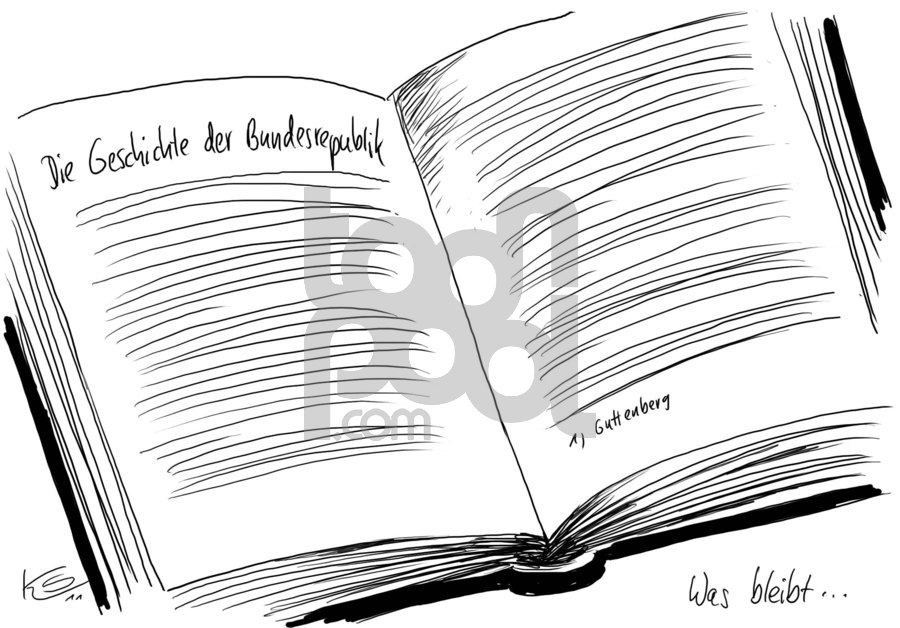 Die Geschichte der Bundesrepublik
1) Guttenberg
Was bleibt...
toonpool
.com
KS
11